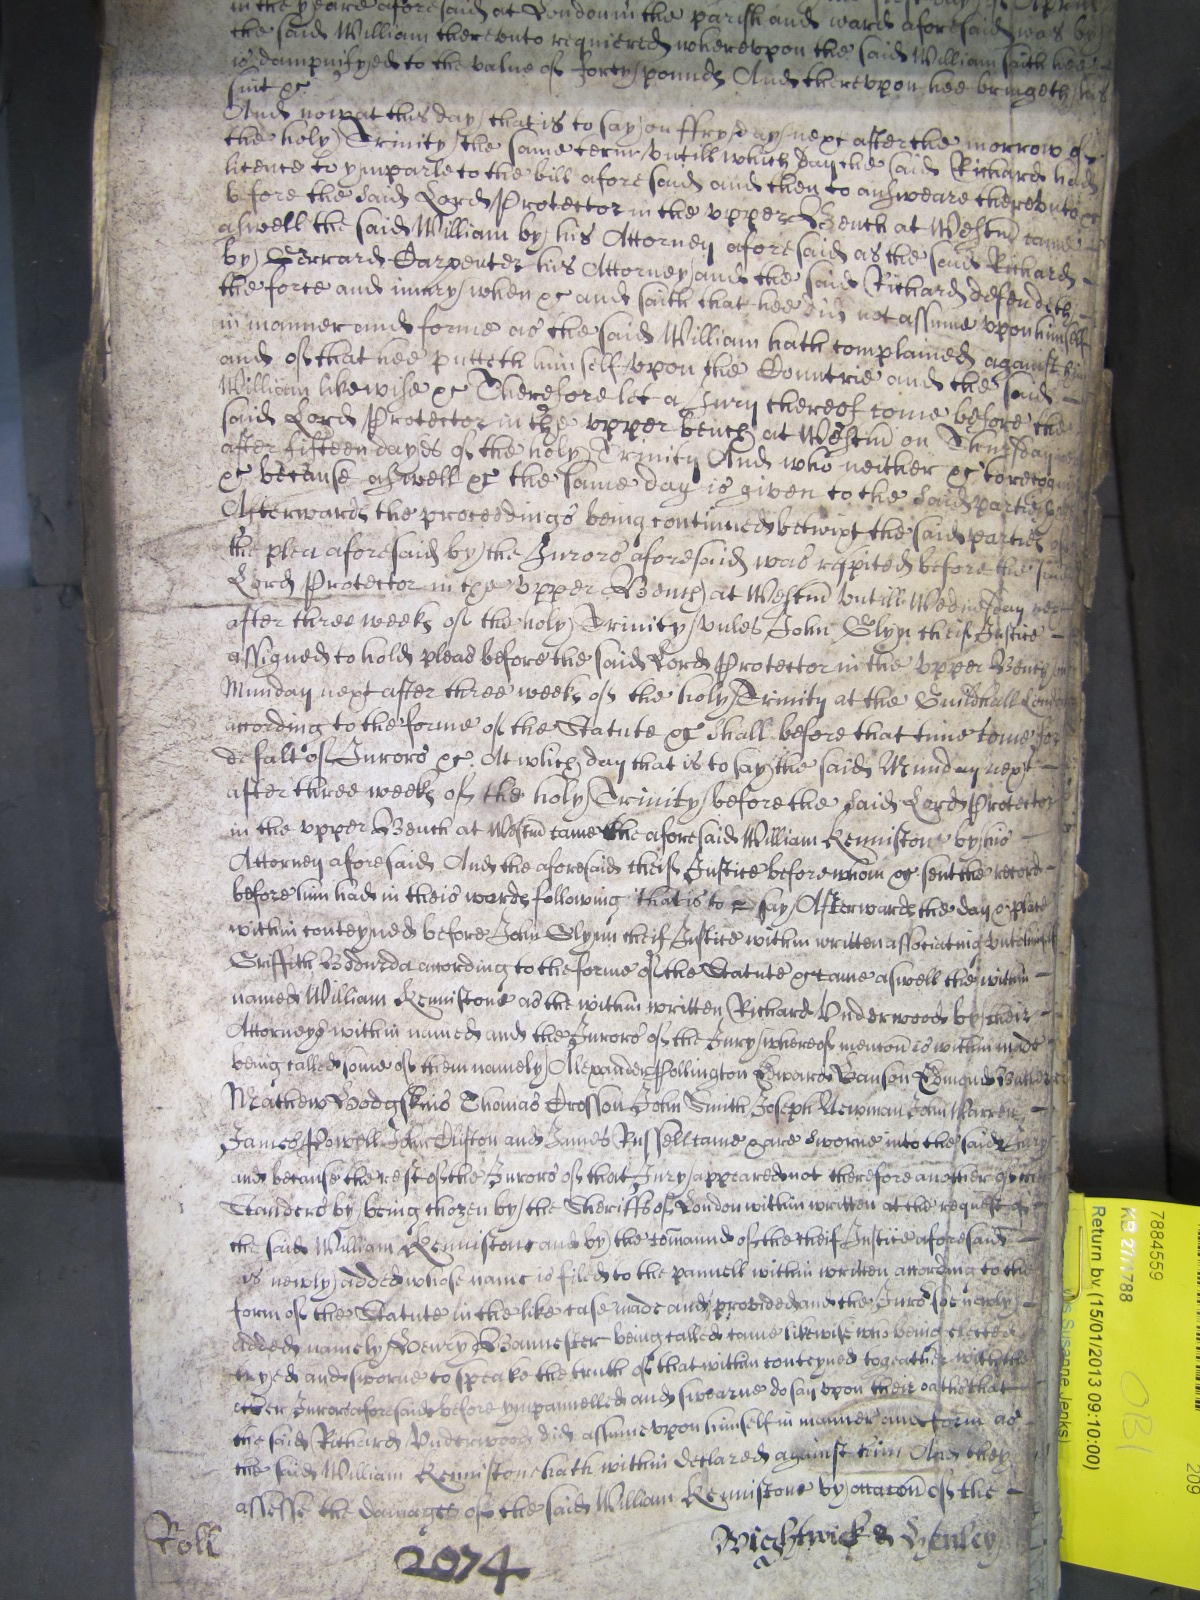 in the yeare aforesaid at London in the parish and ward aforesaid was by
the said William therevnto requiered wherevpon the said William saith hee
is dampnifyed to the value of forty pounds And therevpon hee bringeth his
suit &c
And now at this day that is to say on ffryday next after the morrow of
the holy Trinity the same terme vntill which day the said Richard had
licence to ymparle to the bill aforesaid and then to answeare therevnto &c
before the said Lord Protector in the vpper Bench at Westm came
aswell the said William by his Attorney aforesaid as the said Richard
by Gerrard Carpenter his Attorney and the said Richard defendeth
the force and iniury when &c and saith that hee did not assume vpon himself
in manner and forme as the said William hath complained against him
and of that hee putteth himself vpon the Countrie and the said
William likewise &c Therefore let a Jury thereof come before the
said Lord Protector in the vpper bench at Westm on Thursday
after fifteen dayes of the holy Trinity And who neither &c to recogn
&c because aswell &c the same day is given to the said parties
Afterwards the proceedings being continued betwixt the said parties
the plea aforesaid by the Jurors aforesaid was respited before the said
Lord Protector in the vpper Bench at Westm vntill Wednesday next
after three weeks of the holy Trinity vnles John Glyn cheif Justice
assigned to hold pleas before the said Lord Protector in the vpper Bench on
Munday next after three weeks of the holy Trinity at the Guildhall London
according to the forme of the Statute &c shall before that time come for
defalt of Jurors &c. At which day that is to say the said Munday next
after three weeks of the holy Trinity before the said Lord Protector
in the vpper Bench at Westm came the aforesaid William Kenniston by his
Attorney aforesaid And the aforesaid cheif Justice before whom &c sent the record
before him had in theis words following that is to say Afterwards the day & place
within conteyned before John Glynn cheif Justice within written associating vnto himself
Griffith Bodurda according to the forme of the Statute &c came aswell the within
named William Kenniston as the within written Richard Vnderwood by their
Attorneys within named and the Jurors of the Jury whereof mention is within made
being called some of them namely Alexander Pollington Edward Banson Edmond Butler
Mathew Hodgskins Thomas Crosson John Smith Joseph Newman John Warren
James Powell John Clifton and James Russell came & are sworne into the said Jury
and because the rest of the Jurors of that Jury appeared not therefore another of the
Standers by being chozen by the Sheriffs of London within written at the request of
the said William Kenniston and by the command of the cheif Justice aforesaid
is newly added whose name is filed to the pannell within written according to the
form of the Statute in the like case made and provided and the Juror soe newly
added namely Henry Bannester being called came likewise who being elected
tryed and sworne to speake the truth of that within conteyned togeather with the
other Jurors aforesaid before ympannelled and swearne do say vpon their oathes that
the said Richard Vnderwood did assume vpon himself in manner and form as
the said William Kenniston hath within declared against him And they
assesse the damages of the said William Kenniston by occasion of the
Roll
2074
Wightwick & Henley
7884559
KB 27/1788
Return by (15/01/2013 09:10:00)
Susanne Jenks)
OBI
209